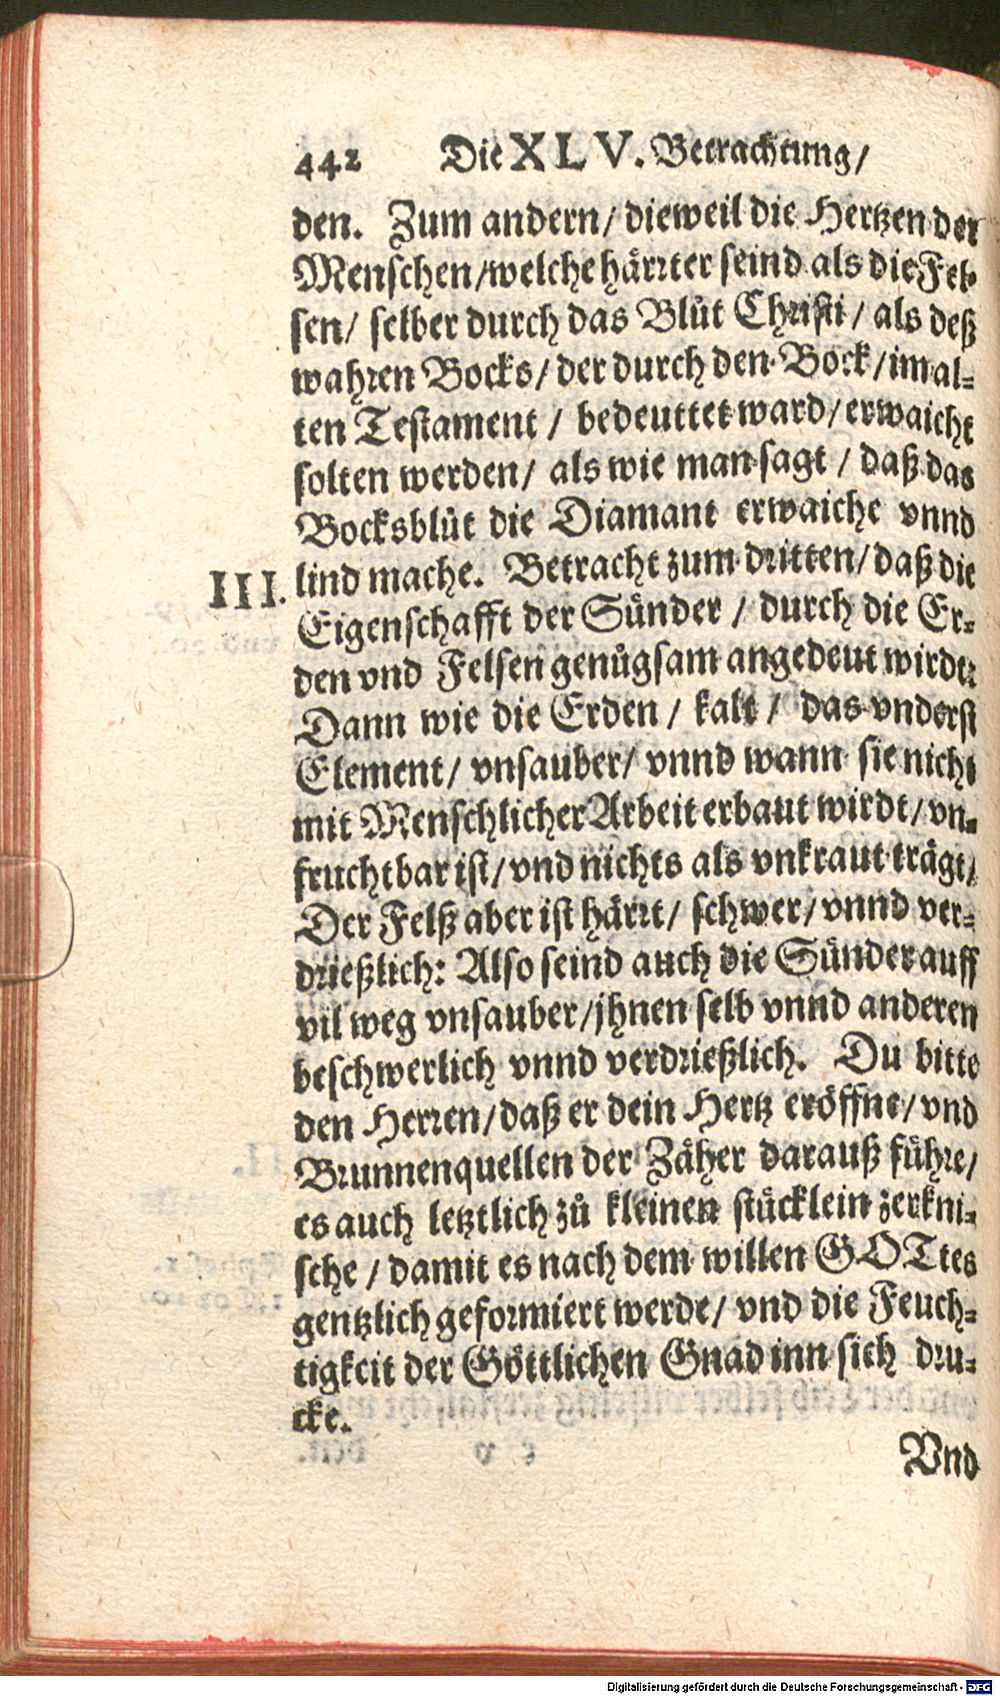 442 Die XLV. Betrachtung/
den. Zum andern/ dieweil die Hertzen der
Menschen/welche härrter seind als die Fel-
sen/ selber durch das Blůt Christi/ als deß
wahren Bocks/ der durch den Bock/ im al-
ten Testament/ bedeuttet ward/ erwaicht
solten werden/ als wie man sagt/ daß das
Bocksblůt die Diamant erwaiche vnnd
III. lind mache. Betracht zum dritten/ daß die
Eigenschafft der Sünder/ durch die Er-
den vnd Felsen genůgsam angedeut wirdt:
Dann wie die Erden/ kalt/ das vnderst
Element/ vnsauber/ vnnd wann sie nicht
mit Menschlicher Arbeit erbaut wirdt/ vn-
fruchtbar ist/ vnd nichts als vnkraut trägt/
Der Felß aber ist härrt/ schwer/ vnnd ver-
drießlich: Also seind auch die Sünder auff
vil weg vnsauber/jhnen selb vnnd anderen
beschwerlich vnnd verdrießlich. Du bitte
den Herren/ daß er dein Hertz eröffne/ vnd
Brunnenquellen der Zäher darauß führe/
es auch letztlich zů kleinen stücklein zerkni-
sche/ damit es nach dem willen GOTtes
gentzlich geformiert werde/ vnd die Feuch-
tigkeit der Göttlichen Gnad inn sich dru-
cke.
Vnd
Digitalisierung gefördert durch die Deutsche Forschungsgemeinschaft - DFG